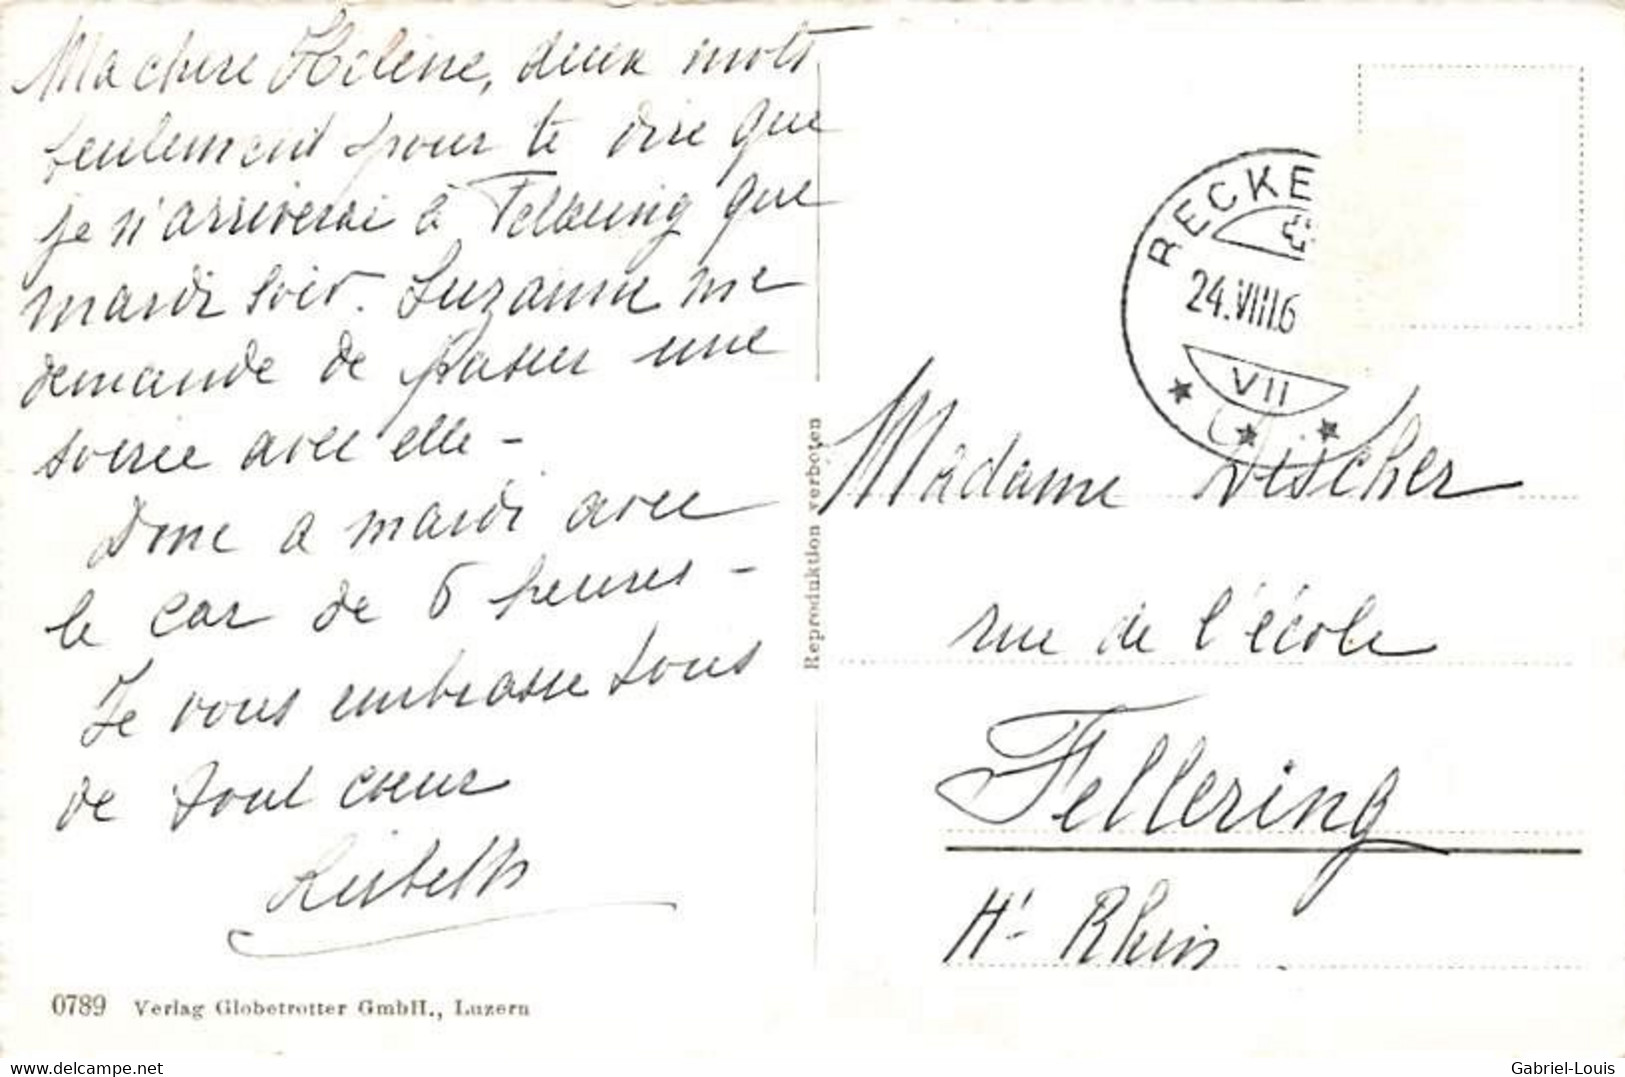 Ma chère Hélène, deux mots
seulement pour te dire que
je n'arriverai à Fellering que
mardi soir. Suzanne me
demande de passer une
soirée avec elle -
Donc a mardi avec
le car de 6 heures -
Je vous embrasse tous
de tout cœur
Liesbeth
0789 Verlag Globetrotter GmbH., Luzern
Reproduktion verboten
RECKE
24.VIII.6
VII
Madame Discher
rue de l'école
Fellering
Ht- Rhin
delcampe.net
Gabriel-Louis